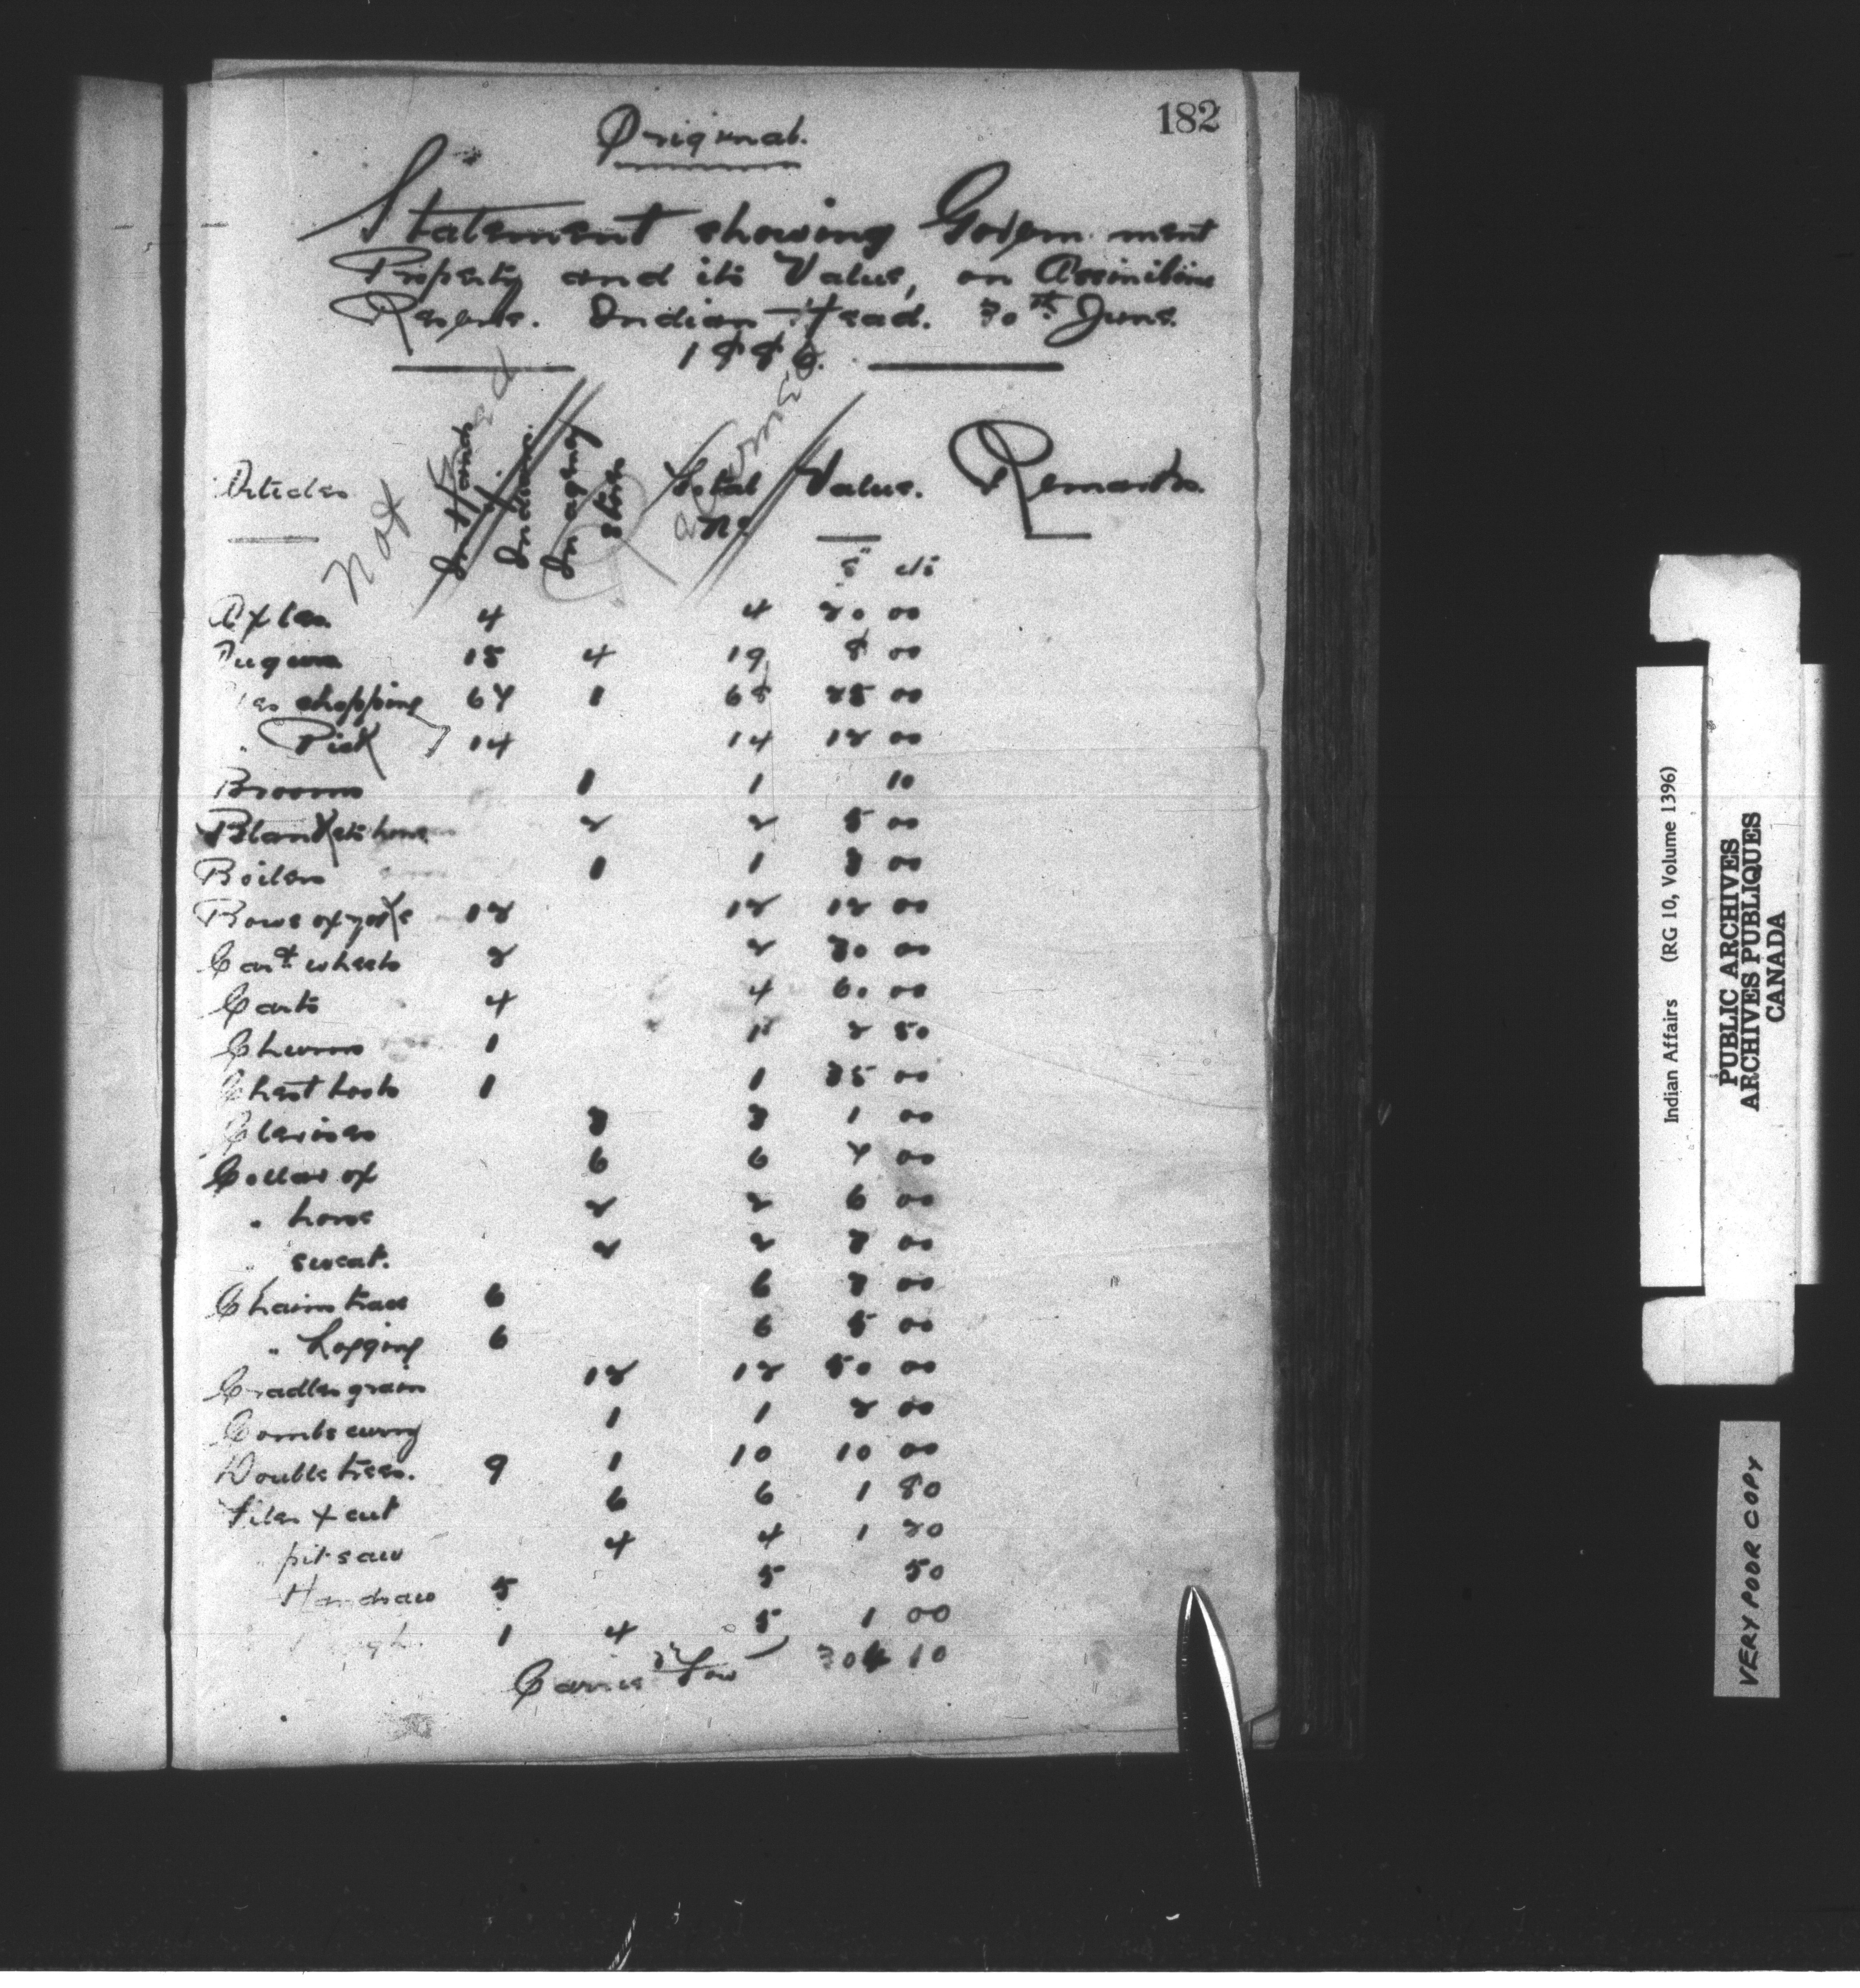 182
Original.
Statement showing Govern ment
Property and its Value, on Assiniboine
Reserve. Indian Head. 30th June.
1886.
Articles In Hands of Indians. In agency Store Total No. Value. Remarks.
Not
$ cts
Axles 4 4 20 00
Augurs 15 4 19 8 00
chopping 64 1 65 25 00
" Pick 14 14 12 00
Brooms 1 1 10
Blankets horse 2 2 5 00
Boilers 1 1 3 00
Bows ox yoke 12 12 12 00
Cart wheels 2 2 30 00
Carts 4 4 60 00
Churns 1 1 2 50
Chest tools 1 1 35 00
Clevises 3 3 1 00
Collars ox 6 6 00
" horse 2 2 6 00
" sweat. 2 2 00
Chains trace 6 6 00
" Logging 6 6 5 00
Cradles grain 12 12 50 00
Combs curry 1 1 2 00
Doubletrees. 9 1 10 10 00
Files x cut 6 6 1 80
pit saw 4 4 1 20
Handsaw 5 5 50
1 4 5 1 00
Carried For 10
Indian Affairs (RG 10, Volume 1396)
PUBLIC ARCHIVES
ARCHIVES PUBLIQUES
CANADA
VERY POOR COPY